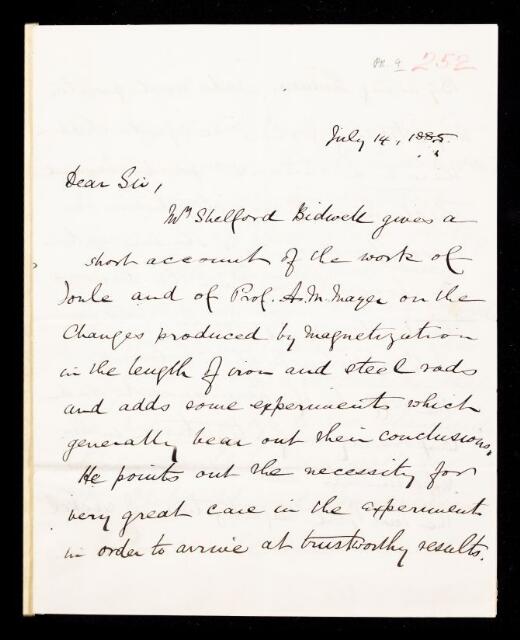 252
July 14, 1885.
Dear Sir,
Mr Shelford Bidwell gives a
short account of the work of
Joule and of Prof. A. M. Mayer on the
Changes produced by magnetization
in the length of iron and steel rods
and adds some experiments which
generally bear out their conclusions.
He points out the necessity for
very great care in the experiments
in order to arrive at trustworthy results.